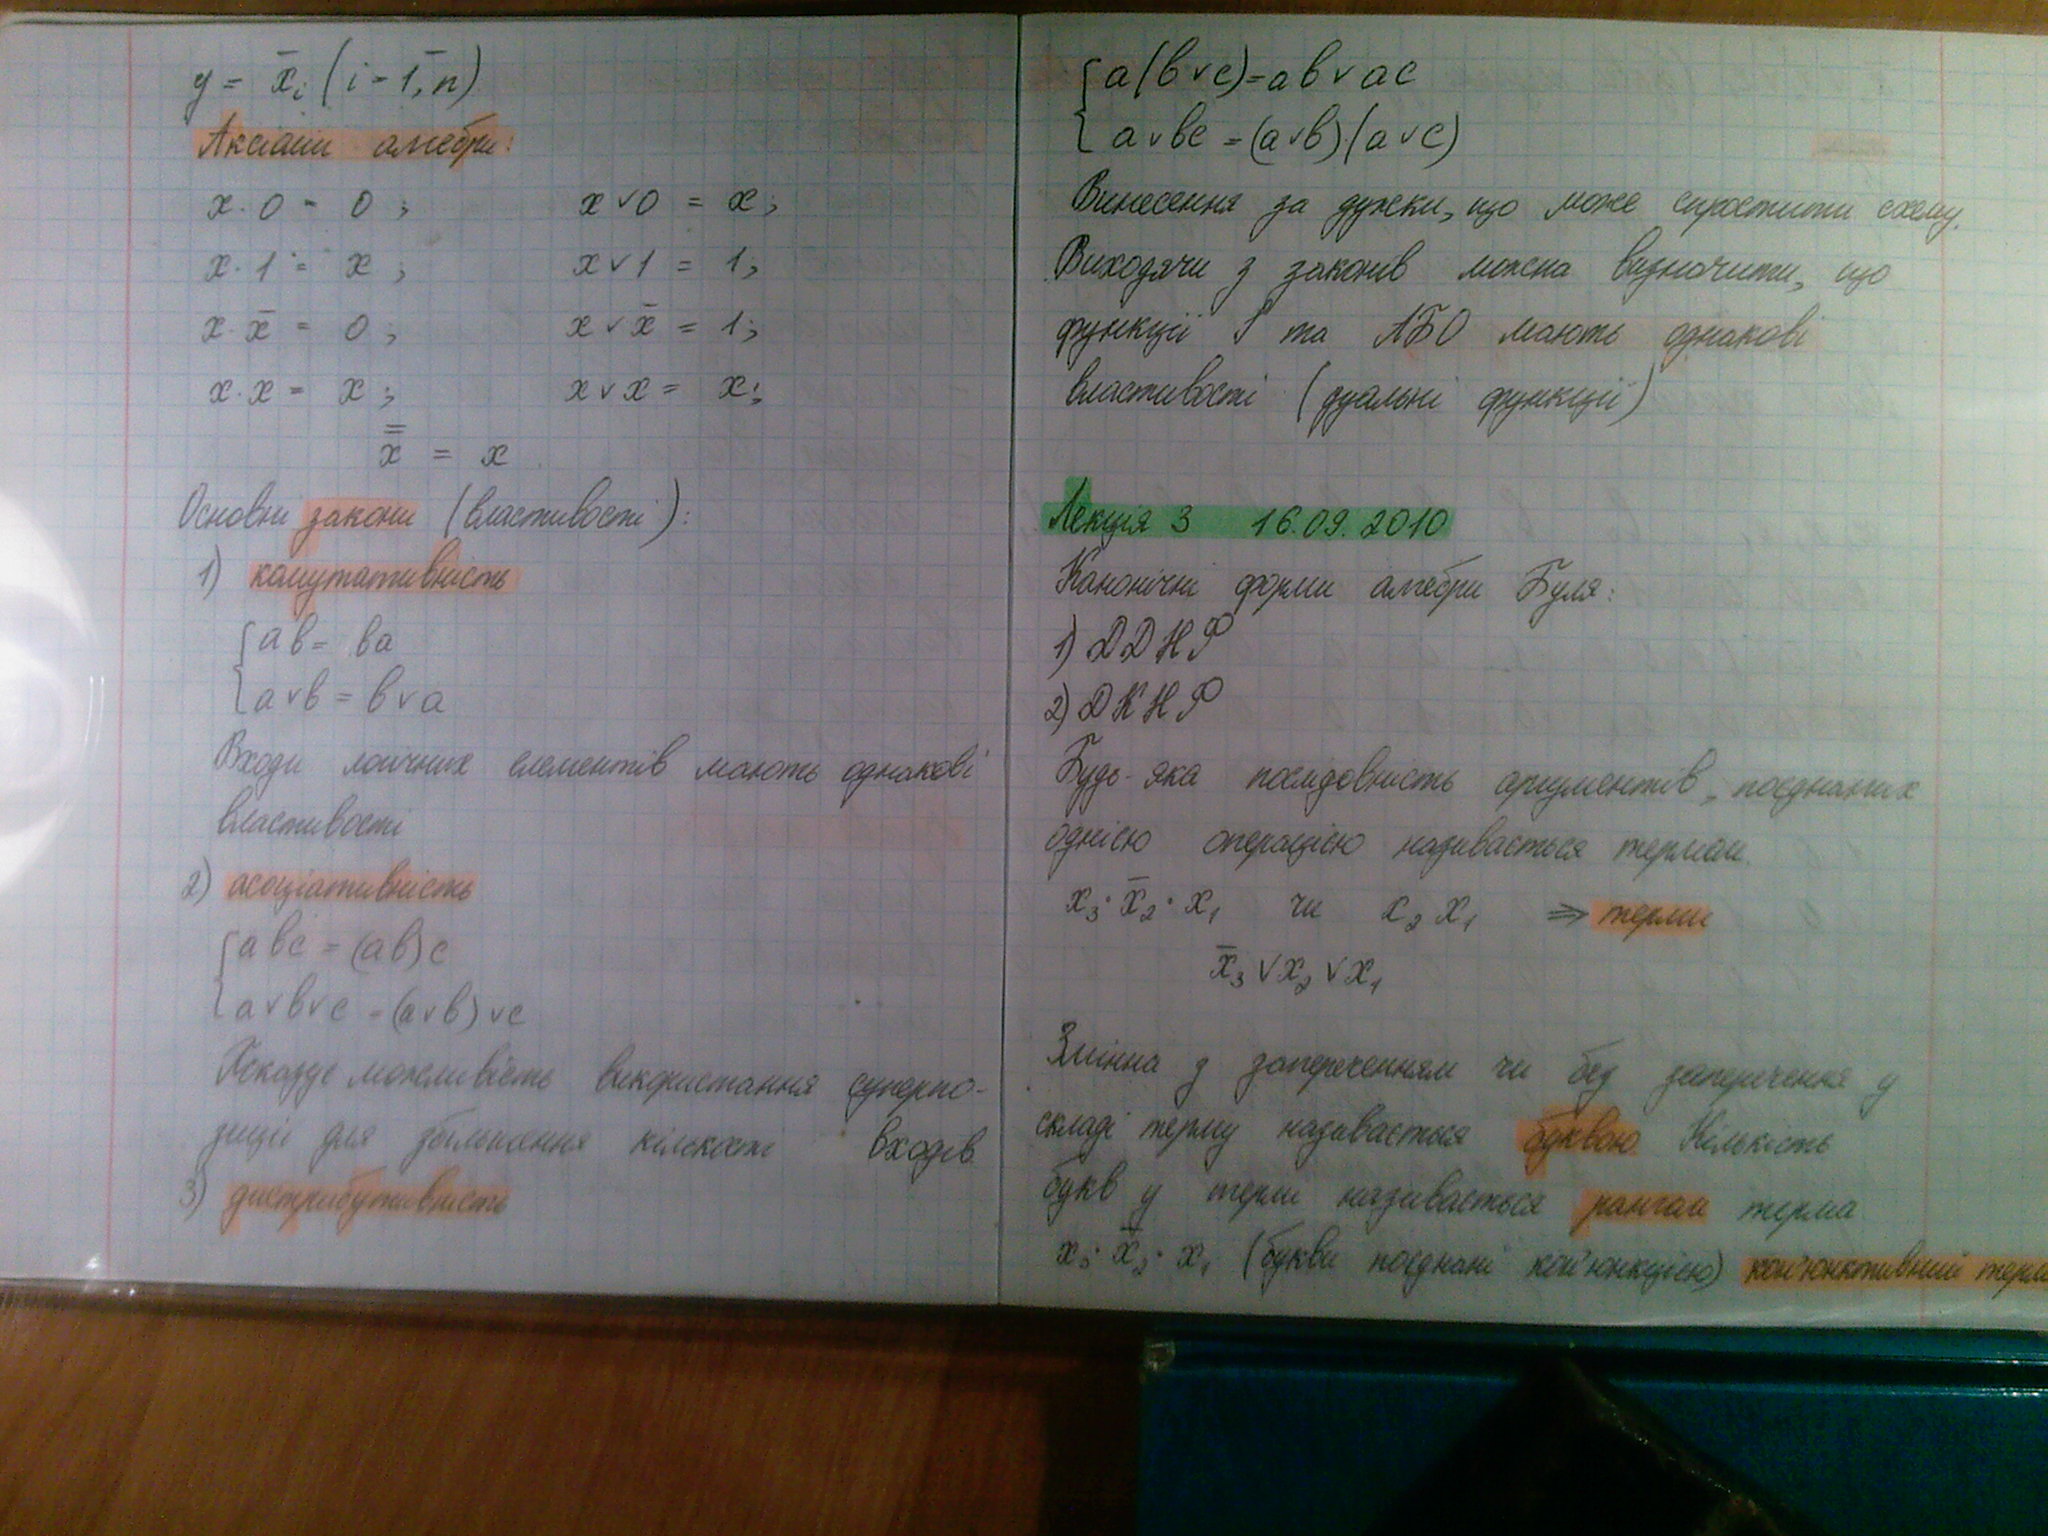 y = x̄ᵢ (i = 1, n)
Аксіоми алгебри:
x · 0 = 0 ; x ∨ 0 = x ;
x · 1 = x ; x ∨ 1 = 1 ;
x · x̄ = 0 ; x ∨ x̄ = 1 ;
x · x = x ; x ∨ x = x ;
x̿ = x
Основні закони (властивості):
1) комутативність
{ ab = ba
{ a ∨ b = b ∨ a
Входи логічних елементів мають однакові
властивості
2) асоціативність
{ abc = (ab)c
{ a ∨ b ∨ c = (a ∨ b) ∨ c
можливість використання суперпо-
зиції для збільшення кількості входів
3) дистрибутивність
{ a(b ∨ c) = ab ∨ ac
{ a ∨ bc = (a ∨ b)·(a ∨ c)
Винесення за дужки, що може спростити схему.
Виходячи з законів можна визначити, що
функції І та АБО мають однакові
властивості (дуальні функції)
Лекція 3 16.09.2010
Канонічні форми алгебри Буля:
1) ДДНФ
2) ДКНФ
Будь-яка послідовність аргументів, поєднаних
однією операцією називається термом.
x₃ · x̄₂ · x₁ чи x₂ x₁ ⇒ терми
x̄₃ ∨ x₂ ∨ x₁
Змінна з запереченням чи без заперечення у
складі терму називається буквою. Кількість
букв у термі називається рангом терма
x₃ · x̄₂ · x₁ (букви поєднані кон'юнкцією) кон'юнктивний терм